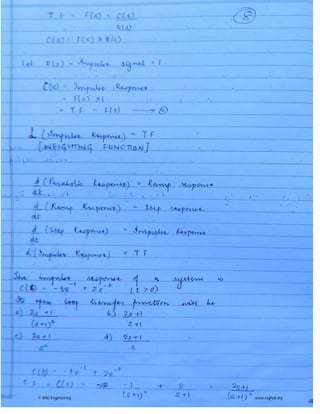 T.F = F(s) = C(s)
R(s)
8
C(s) = F(s) × R(s)
Let R(s) = Impulse signal = 1
C(s) = Impulse Response
= F(s) × 1
= T.F = F(s)
L (Impulse Response) = T.F
[WEIGHTING FUNCTION]
d (Parabolic Response) = Ramp response
dt
d (Ramp Response) = Step response
dt
d (Step Response) = Impulse Response
dt
L (Impulse Response) = T.F
The impulse response of a system is
C(t) = -te^-t + 2e^-t (t>0)
Its open loop transfer function will be
a) 2s+1
(s+1)²
b) 2s+1
s+1
c) 2s+1
s²
d) 2s+1
s
C(t) = -te^-t + 2e^-t
T.F = C(s) = -1 + 2 = 2s+1
(s+1)² s+1 (s+1)²
www.raghul.org